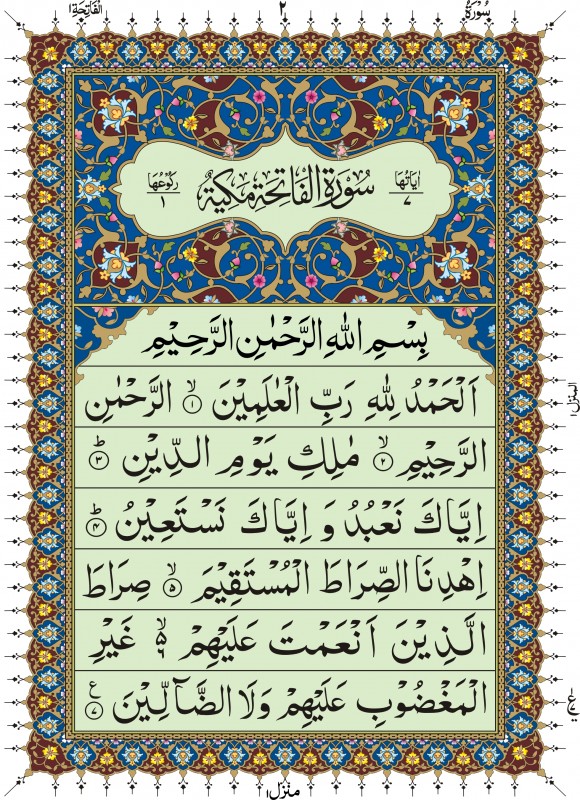 سُوْرَةُ ٢ اَلْفَاتِحَة ١
اٰيَاتُهَا ٧ سُوْرَةُ الْفَاتِحَةِ مَكِّيَّةٌ رُكُوْعُهَا ١
بِسْمِ اللّٰهِ الرَّحْمٰنِ الرَّحِيْمِ
اَلْحَمْدُ لِلّٰهِ رَبِّ الْعٰلَمِيْنَ ۙ‏ ﴿۱﴾ الرَّحْمٰنِ
الرَّحِيْمِ ۙ‏ ﴿۲﴾ مٰلِكِ يَوْمِ الدِّيْنِ ؕ‏ ﴿۳﴾
اِيَّاكَ نَعْبُدُ وَ اِيَّاكَ نَسْتَعِيْنُ ؕ‏ ﴿۴﴾
اِهْدِنَا الصِّرَاطَ الْمُسْتَقِيْمَ ۙ‏ ﴿۵﴾ صِرَاطَ
الَّذِيْنَ اَنْعَمْتَ عَلَيْهِمْ ۙ۬ ﴿۶﴾ غَيْرِ
الْمَغْضُوْبِ عَلَيْهِمْ وَلَا الضَّآلِّيْنَ ﴿۷﴾ ع
المنزل ١
منزل ١